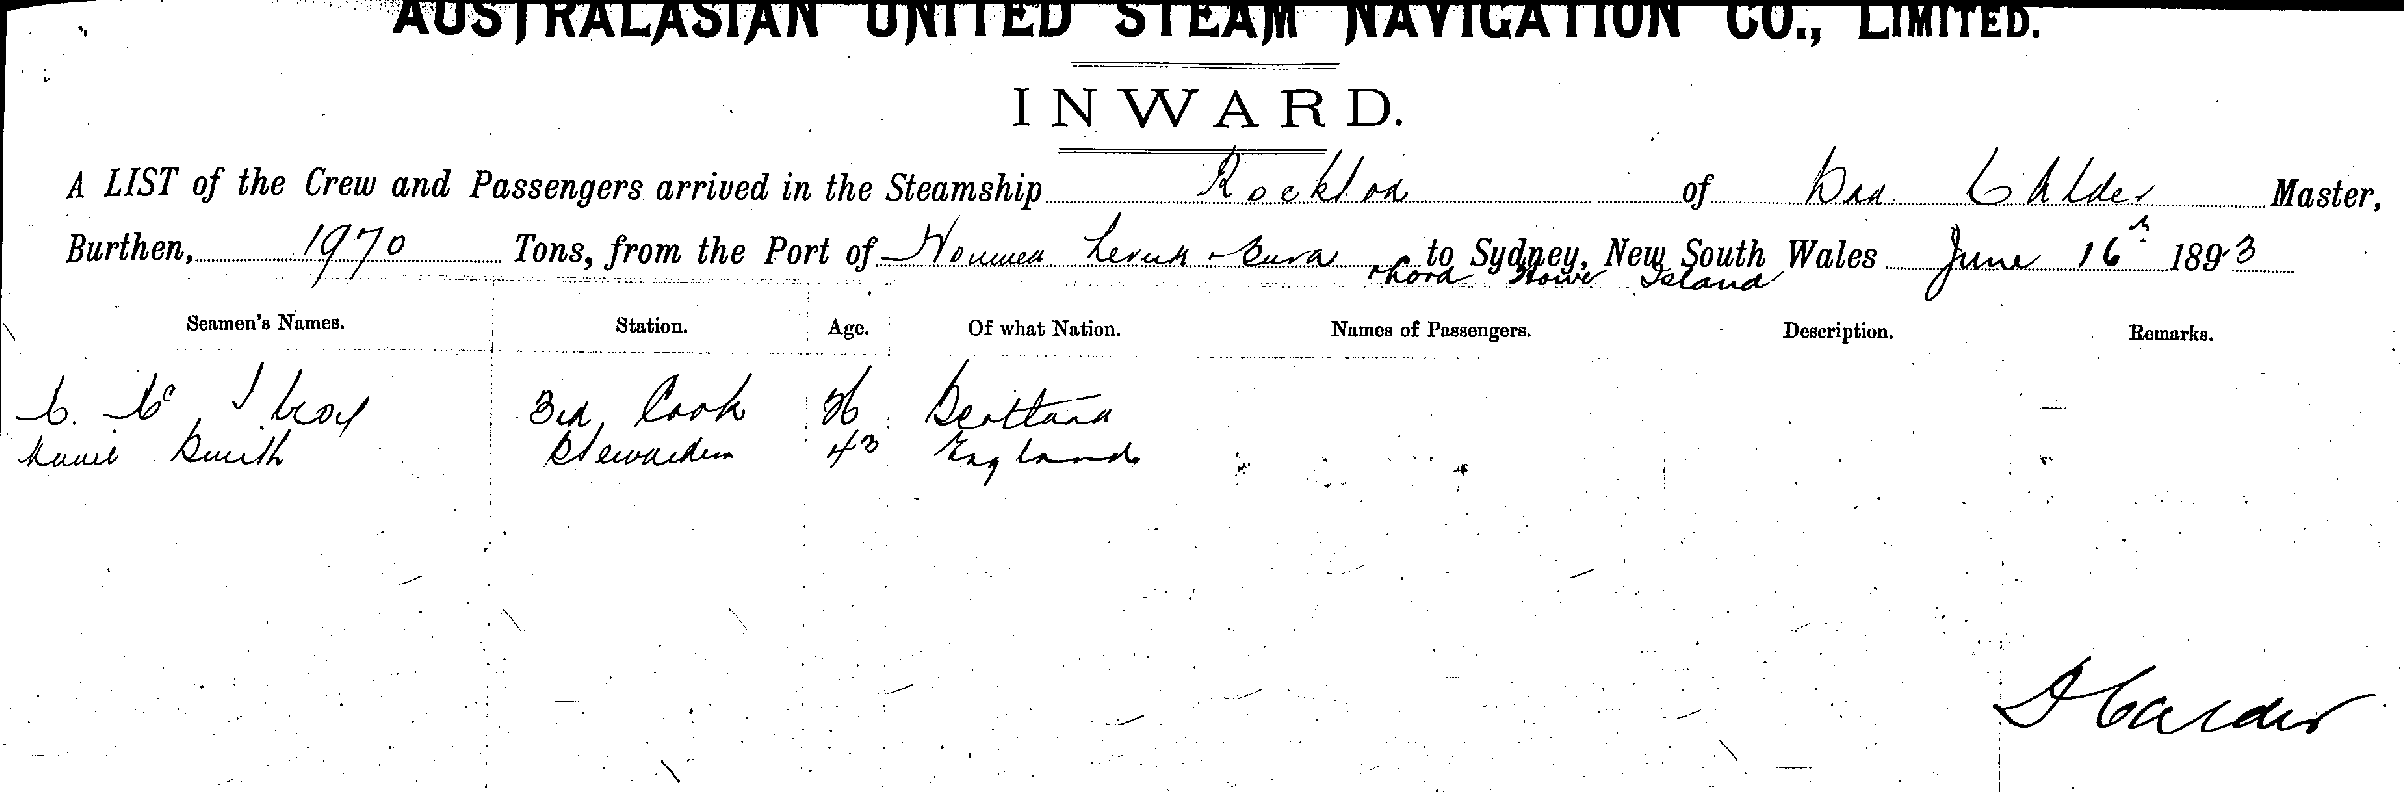 AUSTRALASIAN UNITED STEAM NAVIGATION CO., LIMITED.
INWARD.
A LIST of the Crew and Passengers arrived in the Steamship Rockton of Calder Master,
Burthen, 1970 Tons, from the Port of Noumea Levuka Suva to Sydney, New South Wales June 16th 1893
& Lord Howe Island
Seamen's Names. Station. Age. Of what Nation. Names of Passengers. Description. Remarks.
3rd Cook Scotland
Smith Stewardess 43 England
D Calder